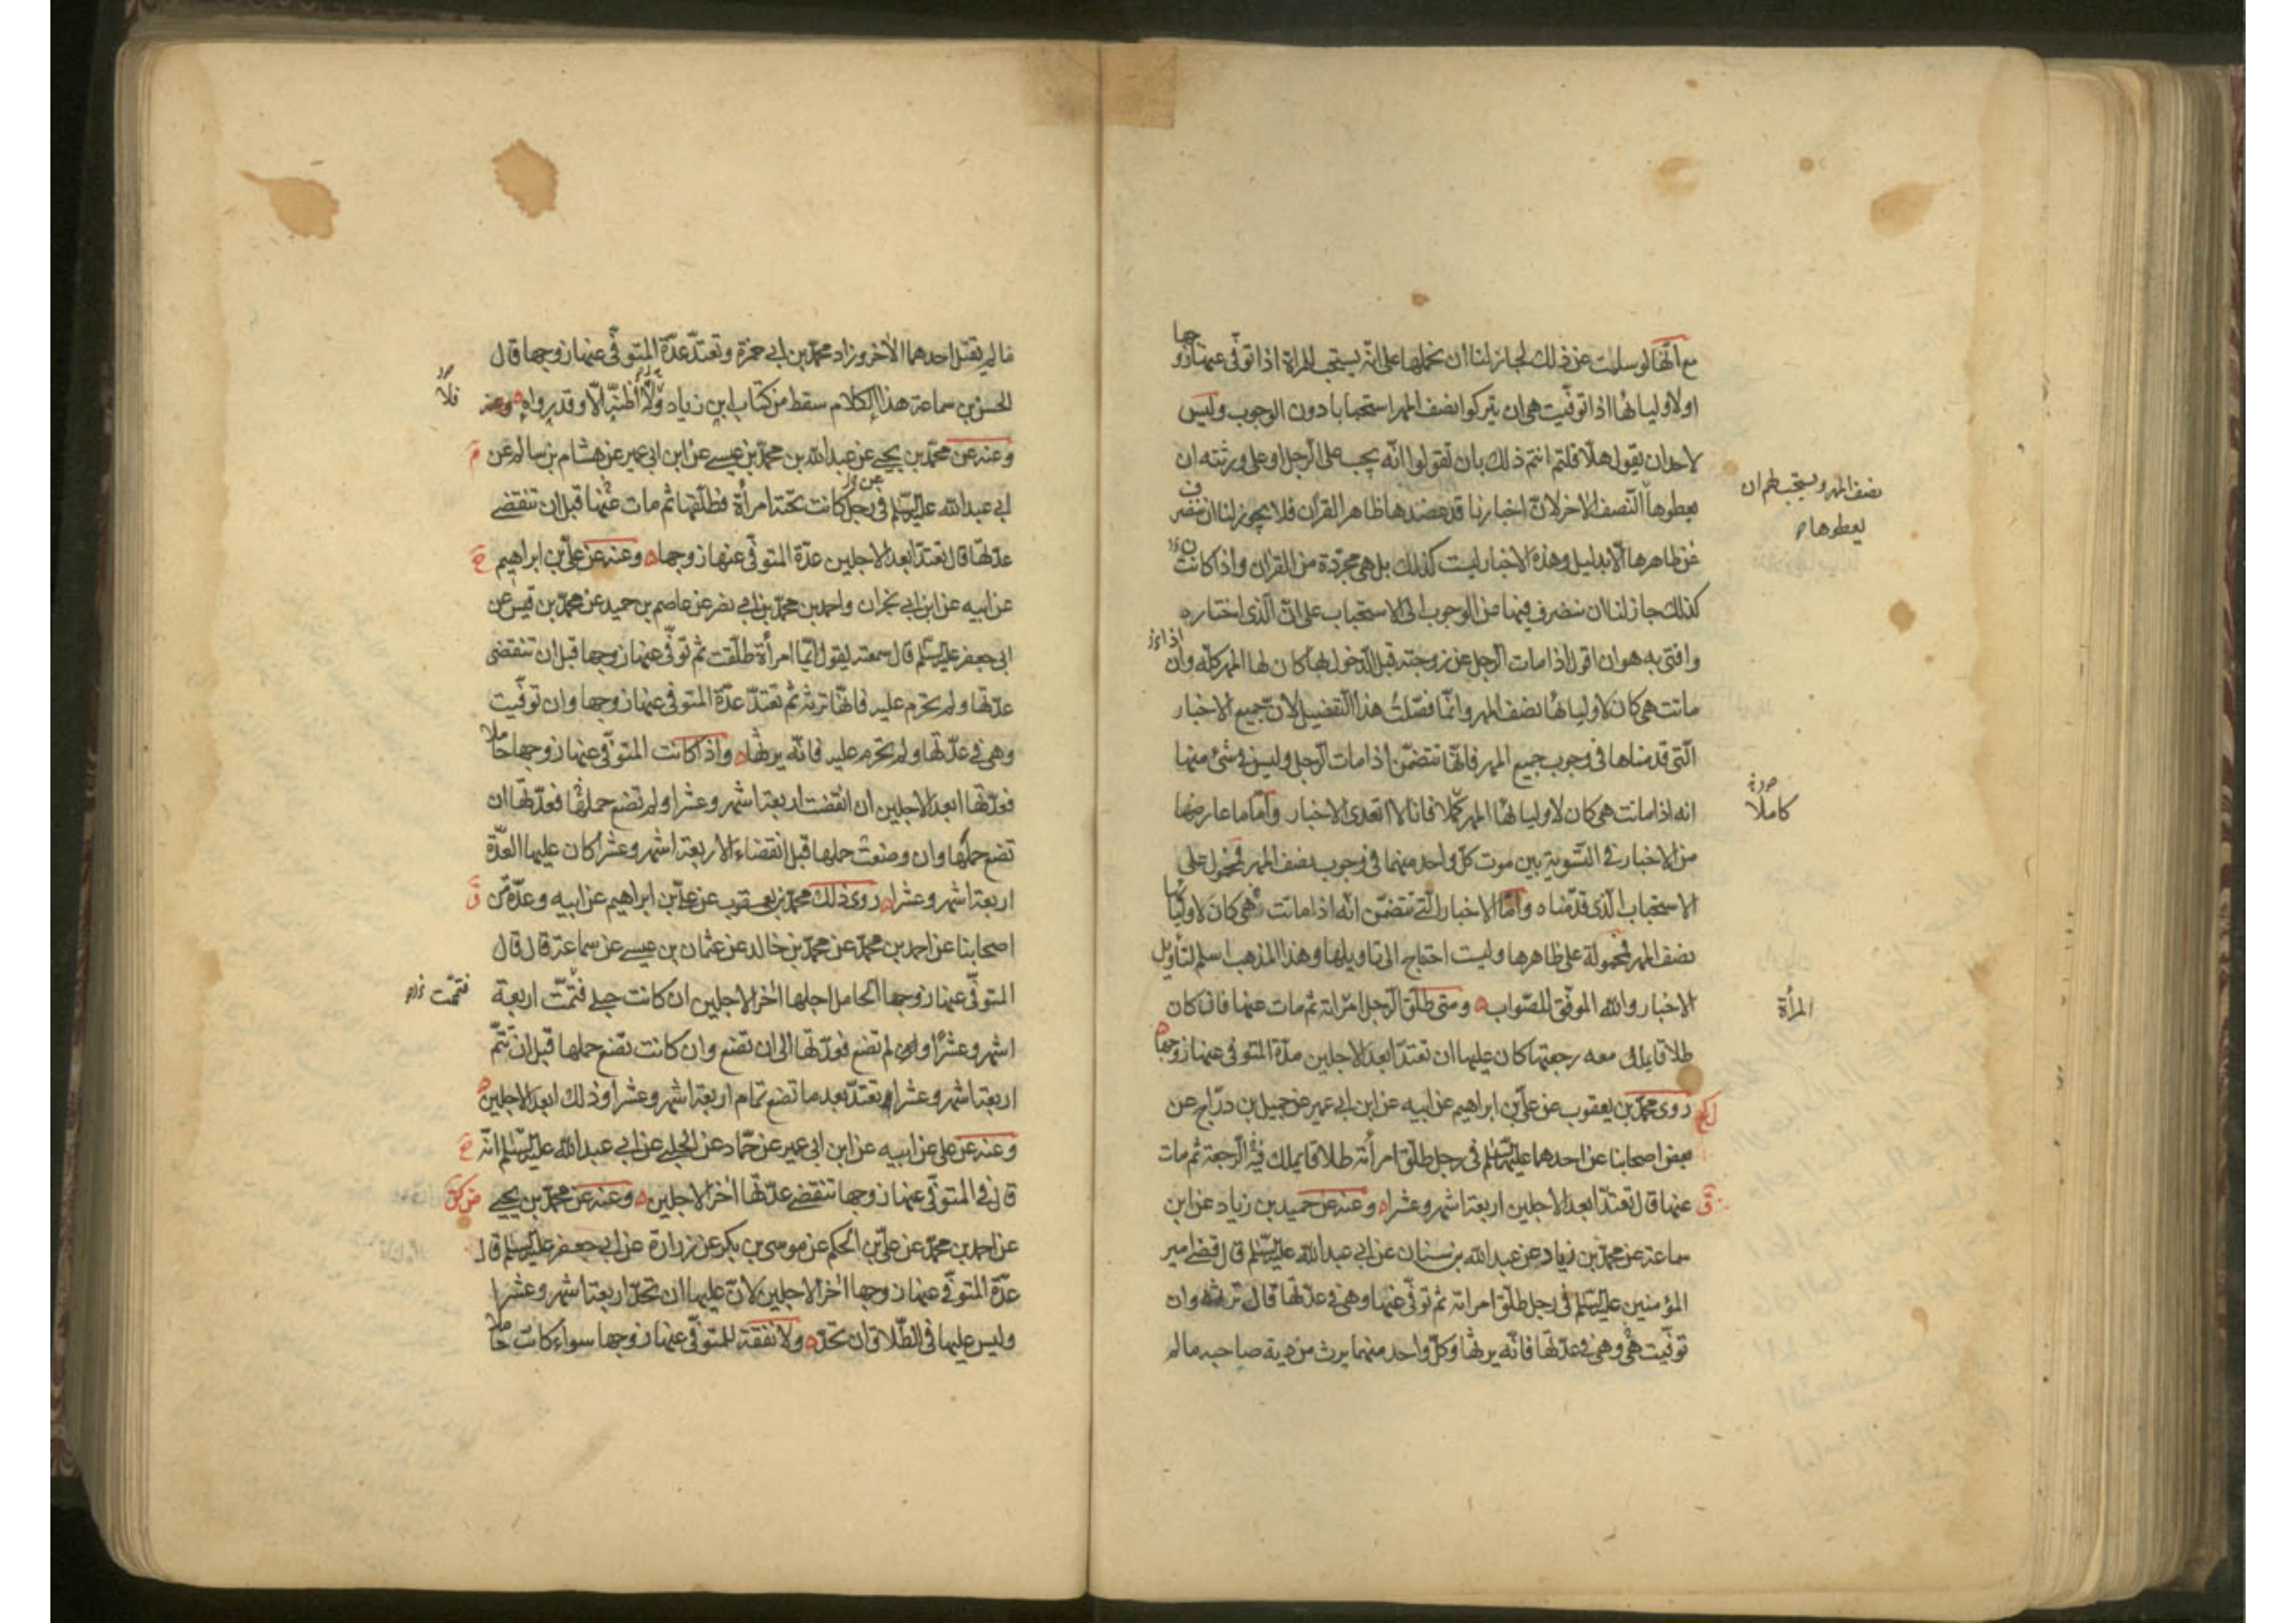 مع انّها لو سلمت عن ذلك لجاز لنا ان نحملها على انّه يستحب للمراة اذا توفّى عنها زوجها
او لاوليائها اذا توفّيت هى ان يتركوا نصف المهر استحبابا دون الوجوب وليس
لاحد ان يقول هلّا قلتم انتم ذلك بان تقولوا انّه يجب على الرّجل او على ورثته ان
نصف المهر ويستحب لهم ان
يعطوها
يعطوها النّصف الاخر لانّ اخبارنا قد عضدها ظاهر القران فلا يجوز لنا ان ننصرف
عن ظاهرها الّا بدليل وهذه الاخبار ليست كذلك بل هى مجرّدة من القران واذا كانت
كذلك جاز لنا ان ننصرف فيها من الوجوب الى الاستحباب على انّ الّذى اختاره
وافتى به هو ان اقول اذا مات الرّجل عن زوجته قبل الدّخول بها كان لها المهر كلّه وان
ماتت هى كان لاوليائها نصف المهر وانّما فصّلتُ هذا التّفصيل لانّ جميع الاخبار
الّتى قدمناها فى وجوب جميع المهر فانّها تتضمّن اذا مات الرّجل وليس فى شئ منها
انه اذا ماتت هى كان لاوليائها المهر كملا فانا لا اتعدى الاخبار وامّا ما عارضها
كاملًا
من الاخبار فى التّسوية بين موت كلّ واحد منهما فى وجوب نصف المهر فمحمول على
الاستحباب الّذى قدّمناه وامّا الاخبار الّتى تتضمّن انّه اذا ماتت هى كان لاوليائها
نصف المهر فمحمولة على ظاهرها وليست احتاج الى تاويلها وهذا المذهب اسلم لتأويل
الاخبار والله الموفّق للصّواب ومتى طلّق الرّجل امراته ثم مات عنها فان كان
المرأة
طلاقا يملك معه رجعتها كان عليها ان تعتدّ ابعد الاجلين عدّة المتوفى عنها زوجها
روى محمّد بن يعقوب عن علىّ بن ابراهيم عن ابيه عن ابن ابى عمير عن جميل بن درّاج عن
بعض اصحابنا عن احدهما عليهما السّلم فى رجل طلّق امرأته طلاقا يملك فيه الرّجعة ثم مات
عنها قال تعتدّ ابعد الاجلين اربعة اشهر وعشرا وعنه عن حميد بن زياد عن ابن
سماعة عن محمّد بن زياد عن عبد الله بن سنان عن ابى عبد الله عليه السّلم قال قضى امير
المؤمنين عليه السّلم فى رجل طلّق امراته ثم توفّى عنها وهى فى عدّتها قال ترثه وان
توفّيت هى وهى فى عدّتها فانّه يرثها وكلّ واحد منهما يرث من دية صاحبه ما لم
ما لم يقتل احدهما الاخر وزاد محمّد بن ابى حمزة وتعتدّ عدّة المتوفّى عنها زوجها قال
الحسن بن سماعة هذا الكلام سقط من كتاب ابن زياد ولا أظنّه الّا وقد رواه
فلا
وعنه عن محمّد بن يحيى عن عبد الله بن محمّد بن عيسى عن ابن ابى عمير عن هشام بن سالم عن
ابى عبد الله عليه السّلم فى رجل كانت تحته امرأة فطلّقها ثم مات عنها قبل ان تنقضى
عدّتها قال تعتدّ ابعد الاجلين عدّة المتوفّى عنها زوجها وعنه عن علىّ بن ابراهيم
عن ابيه عن ابن ابى نجران واحمد بن محمّد بن ابى نصر عن عاصم بن حميد عن محمّد بن قيس عن
ابى جعفر عليه السّلم قال سمعته يقول ايّما امرأة طلّقت ثم توفّى عنها زوجها قبل ان تنقضى
عدّتها ولم تحرم عليه فانّها ترثه ثمّ تعتدّ عدّة المتوفى عنها زوجها وان توفّيت
وهى فى عدّتها ولم تحرم عليه فانّه يرثها واذا كانت المتوفّى عنها زوجها حاملا
فعدّتها ابعد الاجلين ان انقضت اربعة اشهر وعشرا ولم تضع حملها فعدّتها ان
تضع حملها وان وضعت حملها قبل انقضاء الاربعة اشهر وعشرا كان عليها العدّة
اربعة اشهر وعشرا روى ذلك محمّد بن يعقوب عن علىّ بن ابراهيم عن ابيه وعدّة من
اصحابنا عن احمد بن محمّد عن محمّد بن خالد عن عثمان بن عيسى عن سماعة قال قال
المتوفّى عنها زوجها الحامل اجلها اخر الاجلين ان كانت حبلى فتمّت اربعة
فتمّت
اشهر وعشرًا ولم تضع فعدّتها الى ان تضع وان كانت تضع حملها قبل ان تتمّ
اربعة اشهر وعشرا تعتدّ بعد ما تضع تمام اربعة اشهر وعشرا وذلك ابعد الاجلين
وعنه عن على عن ابيه عن ابن ابى عمير عن حمّاد عن الحلبى عن ابى عبد الله عليه السّلم انّه
قال فى المتوفّى عنها زوجها تنقضى عدّتها اخر الاجلين وعنه عن محمّد بن يحيى
عن احمد بن محمّد عن علىّ بن الحكم عن موسى بن بكر عن زرارة عن ابى جعفر عليه السّلم قال
عدّة المتوفّى عنها زوجها اخر الاجلين لانّ عليها ان تحدّ اربعة اشهر وعشرا
وليس عليها فى الطّلاق ان تحدّ ولا نفقة للمتوفّى عنها زوجها سواء كانت حاملا